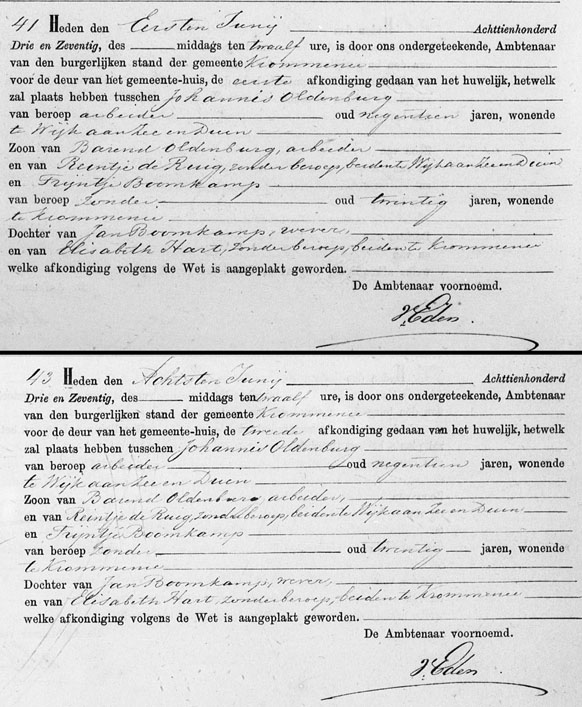 41. Heden den Eersten Junij Achttienhonderd
Drie en Zeventig, des middags ten twaalf ure, is door ons ondergeteekende, Ambtenaar
van den burgerlijken stand der gemeente Krommenie
voor de deur van het gemeente-huis, de eerste afkondiging gedaan van het huwelijk, hetwelk
zal plaats hebben tusschen Johannis Oldenburg
van beroep arbeider oud negentien jaren, wonende
te Wijk aan Zee en Duin
Zoon van Barend Oldenburg, arbeider
en van Reintje de Ruig, zonder beroep, beiden te Wijk aan Zee en Duin
en Trijntje Boomkamp
van beroep zonder oud twintig jaren, wonende
te Krommenie
Dochter van Jan Boomkamp, wever,
en van Elisabeth Hart, zonder beroep, beiden te Krommenie
welke afkondiging volgens de Wet is aangeplakt geworden.
De Ambtenaar voornoemd.
v. Eden.
43. Heden den Achtsten Junij Achttienhonderd
Drie en Zeventig, des middags ten twaalf ure, is door ons ondergeteekende, Ambtenaar
van den burgerlijken stand der gemeente Krommenie
voor de deur van het gemeente-huis, de tweede afkondiging gedaan van het huwelijk, hetwelk
zal plaats hebben tusschen Johannis Oldenburg
van beroep arbeider oud negentien jaren, wonende
te Wijk aan Zee en Duin
Zoon van Barend Oldenburg, arbeider,
en van Reintje de Ruig, zonder beroep, beiden te Wijk aan Zee en Duin
en Trijntje Boomkamp
van beroep zonder oud twintig jaren, wonende
te Krommenie
Dochter van Jan Boomkamp, wever,
en van Elisabeth Hart, zonder beroep, beiden te Krommenie
welke afkondiging volgens de Wet is aangeplakt geworden.
De Ambtenaar voornoemd.
v. Eden.